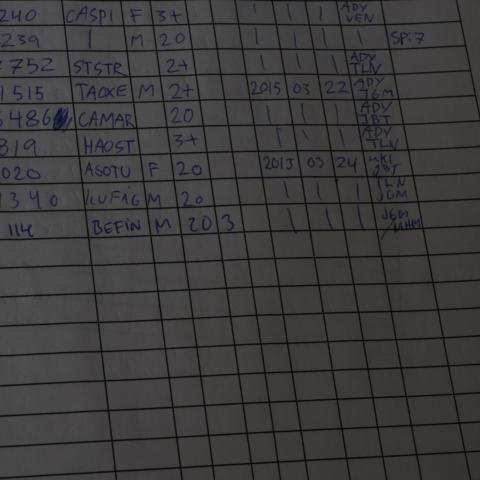 240 CASPI F 3+ | | | ADY VEN
239 | M 20 | | | | SP:7
2752 STSTR 2+ | | | ADY TLN
1515 TAOXE M 2+ 2015 03 22 ADY JGM
6486 CAMAR 20 | | | ADY JBT
819 HAOST 3+ | | | ADY TLN
020 ASOTU F 20 2015 03 24 JBT
1340 M 20 | | | TLN JGM
114 BEFIN M 20 3 | | | JGM /MHM